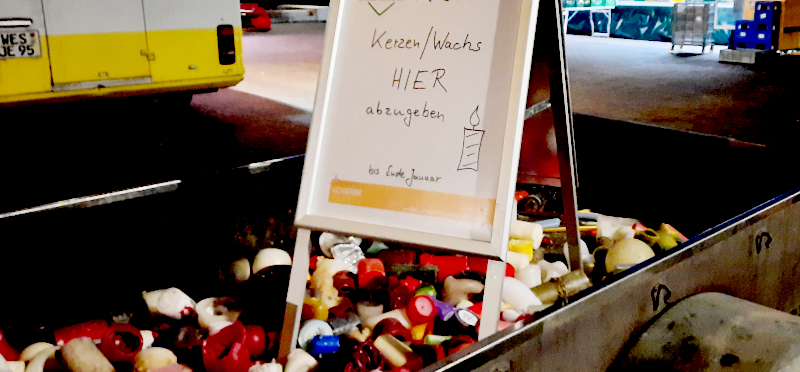 WES
JE 95
Kerzen/Wachs
HIER
abzugeben
bis Ende Januar